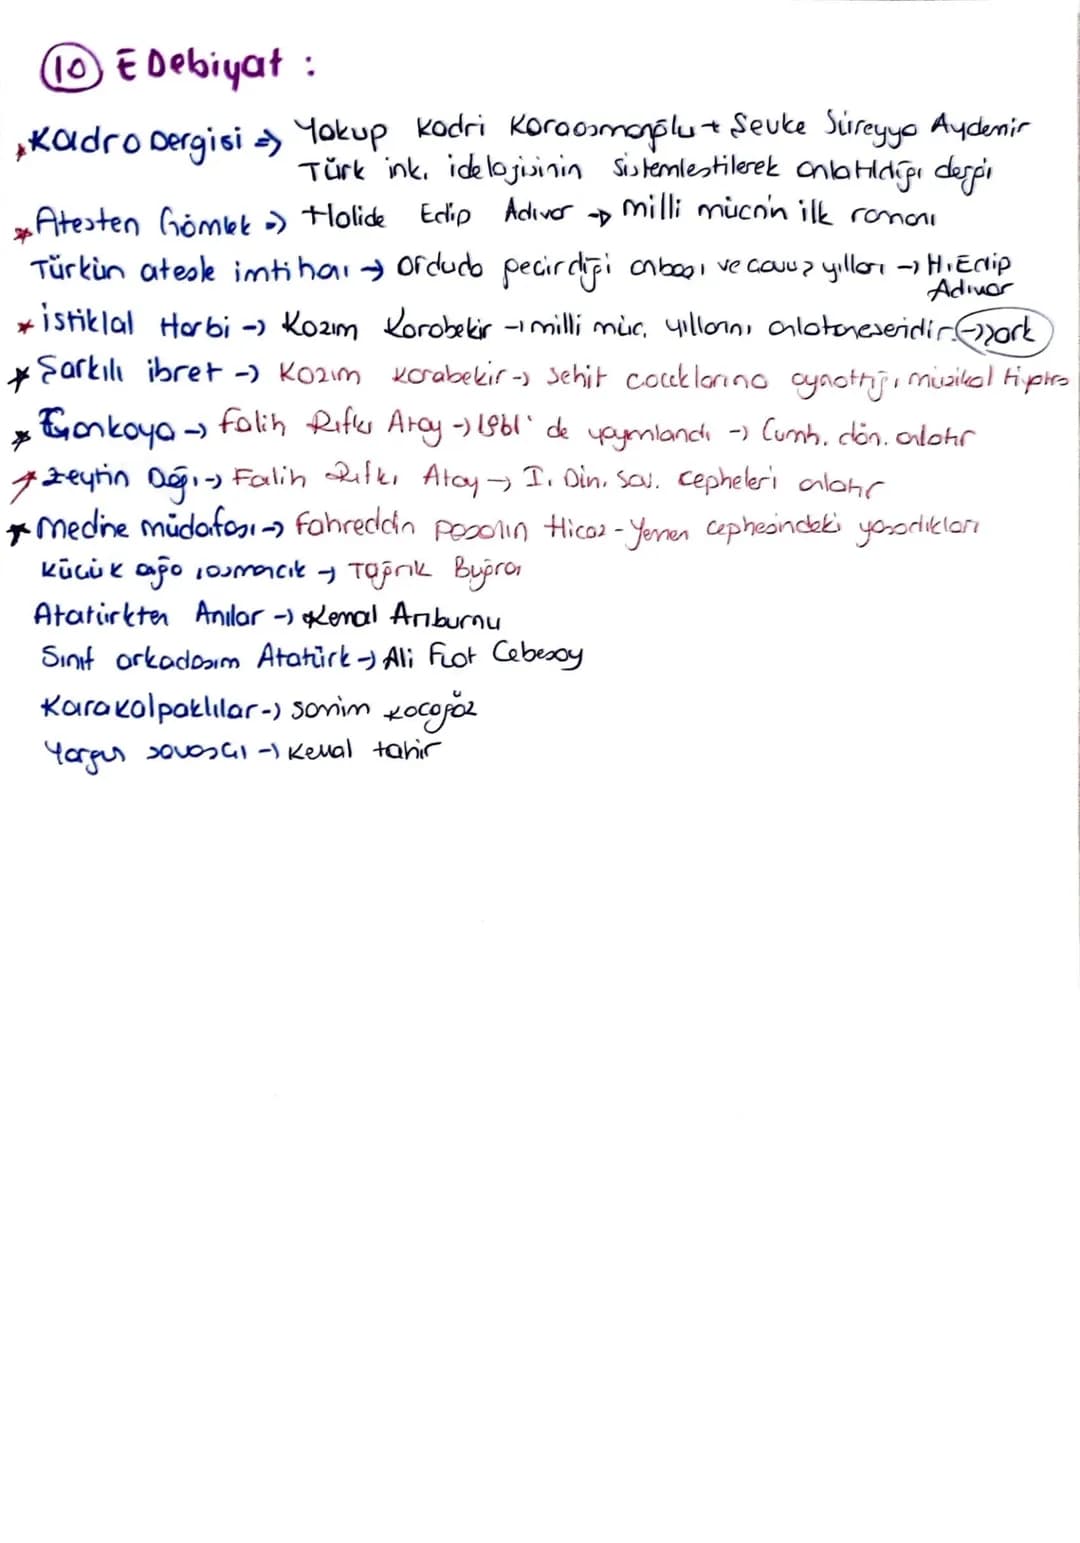 10 Edebiyat :
Kadro Dergisi => Yakup Kadri Karaosmanoğlu + Şevke Süreyya Aydemir
Türk ink. idelojisinin sistemlestilerek anlatıldığı dergi
Atesten Gömlek => Halide Edip Adıvar → milli müc'n ilk romanı
Türkün atesle imtihanı → Orduda geçirdiği onbaşı ve çavuş yılları → H.Edip
Adıvar
istiklal Harbi → Kazım Karabekir → milli müc. yıllarını anlatan eseridir. → şark
Şarkılı ibret → Kazım Karabekir → şehit çocuklarına oynattığı müzikal tiyatro
Çankaya → Falih Rıfkı Atay → 1961' de yayımlandı → Cumh. dön. anlatır
Zeytin Dağı → Falih Rıfkı Atay → I. Dün. sav. cepheleri anlatır
Medine müdafası → Fahreddin paşanın Hicaz - Yemen cephesindeki yaşadıkları
Küçük ağa, osmancık → Tağrık Buğra
Atatürkten Anılar → Kemal Arıburnu
Sınıf arkadaşım Atatürk → Ali Fuat Cebesoy
Karakalpaklılar → samim kocagöz
Yorgun savaşçı → Kemal tahir